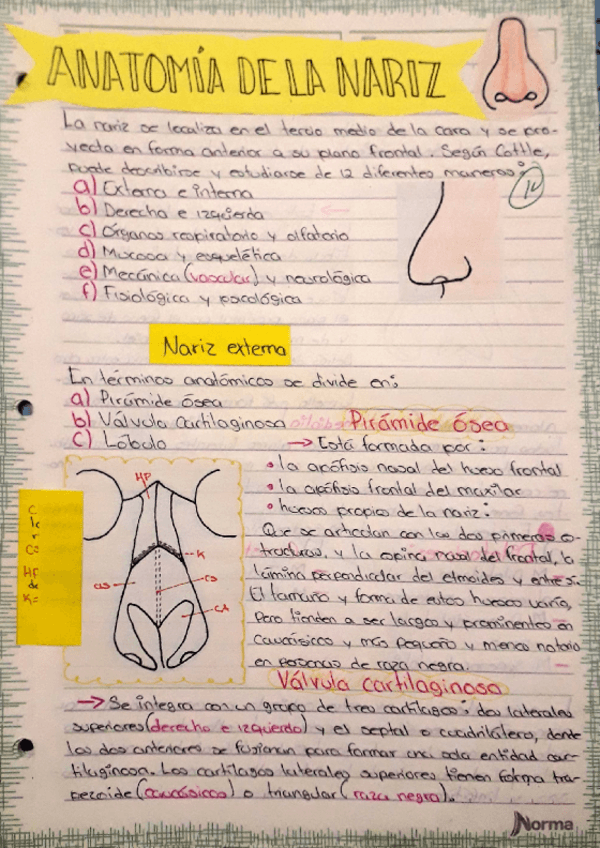 ANATOMÍA DE LA NARIZ
La nariz se localiza en el tercio medio de la cara y se pro-
yecta en forma anterior a su plano frontal. Según Cottle,
puede describirse y estudiarse de 12 diferentes maneras:
a) Externa e interna
b) Derecha e izquierda
c) Órganos respiratorio y olfatorio
d) Mucosa y esquelética
e) Mecánica (vascular) y neurológica
f) Fisiológica y psicológica
Nariz externa
En términos anatómicos se divide en:
a) Pirámide ósea
b) Válvula cartilaginosa
c) Lóbulo
Pirámide ósea
→ Está formada por:
• la apófisis nasal del hueso frontal
• la apófisis frontal del maxilar
• huesos propios de la nariz:
Que se articulan con las dos primeras es-
tructuras, y la espina nasal del frontal, la
lámina perpendicular del etmoides y entre sí.
El tamaño y forma de estos huesos varía,
pero tienden a ser largos y prominentes en
caucásicos y más pequeño y menos notorio
en personas de raza negra.
HP
K
CS
CS
CA
C
HP
K=
Válvula cartilaginosa
→ Se integra con un grupo de tres cartílagos: dos laterales
superiores (derecha e izquierdo) y el septal o cuadrilátero, donde
los dos anteriores se fusionan para formar una sola entidad car-
tilaginosa. Los cartílagos laterales superiores tienen forma tra-
pezoide (caucásicos) o triangular (raza negra).
Norma